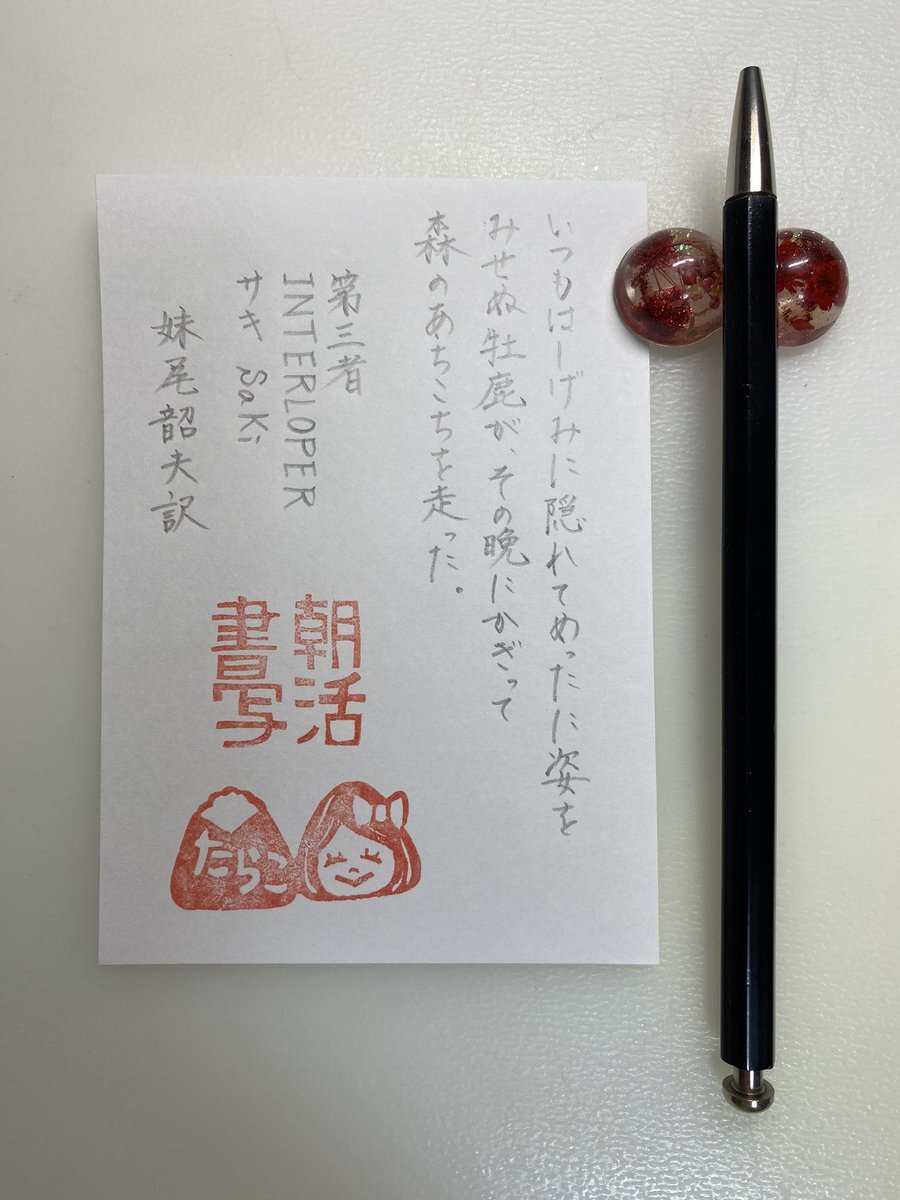 いつもはしげみに隠れてめったに姿を
みせぬ牡鹿が、その晩にかぎって
森のあちこちを走った。
第三者
INTERLOPER
サキ Saki
妹尾韶夫訳
朝活
書写
たらこ